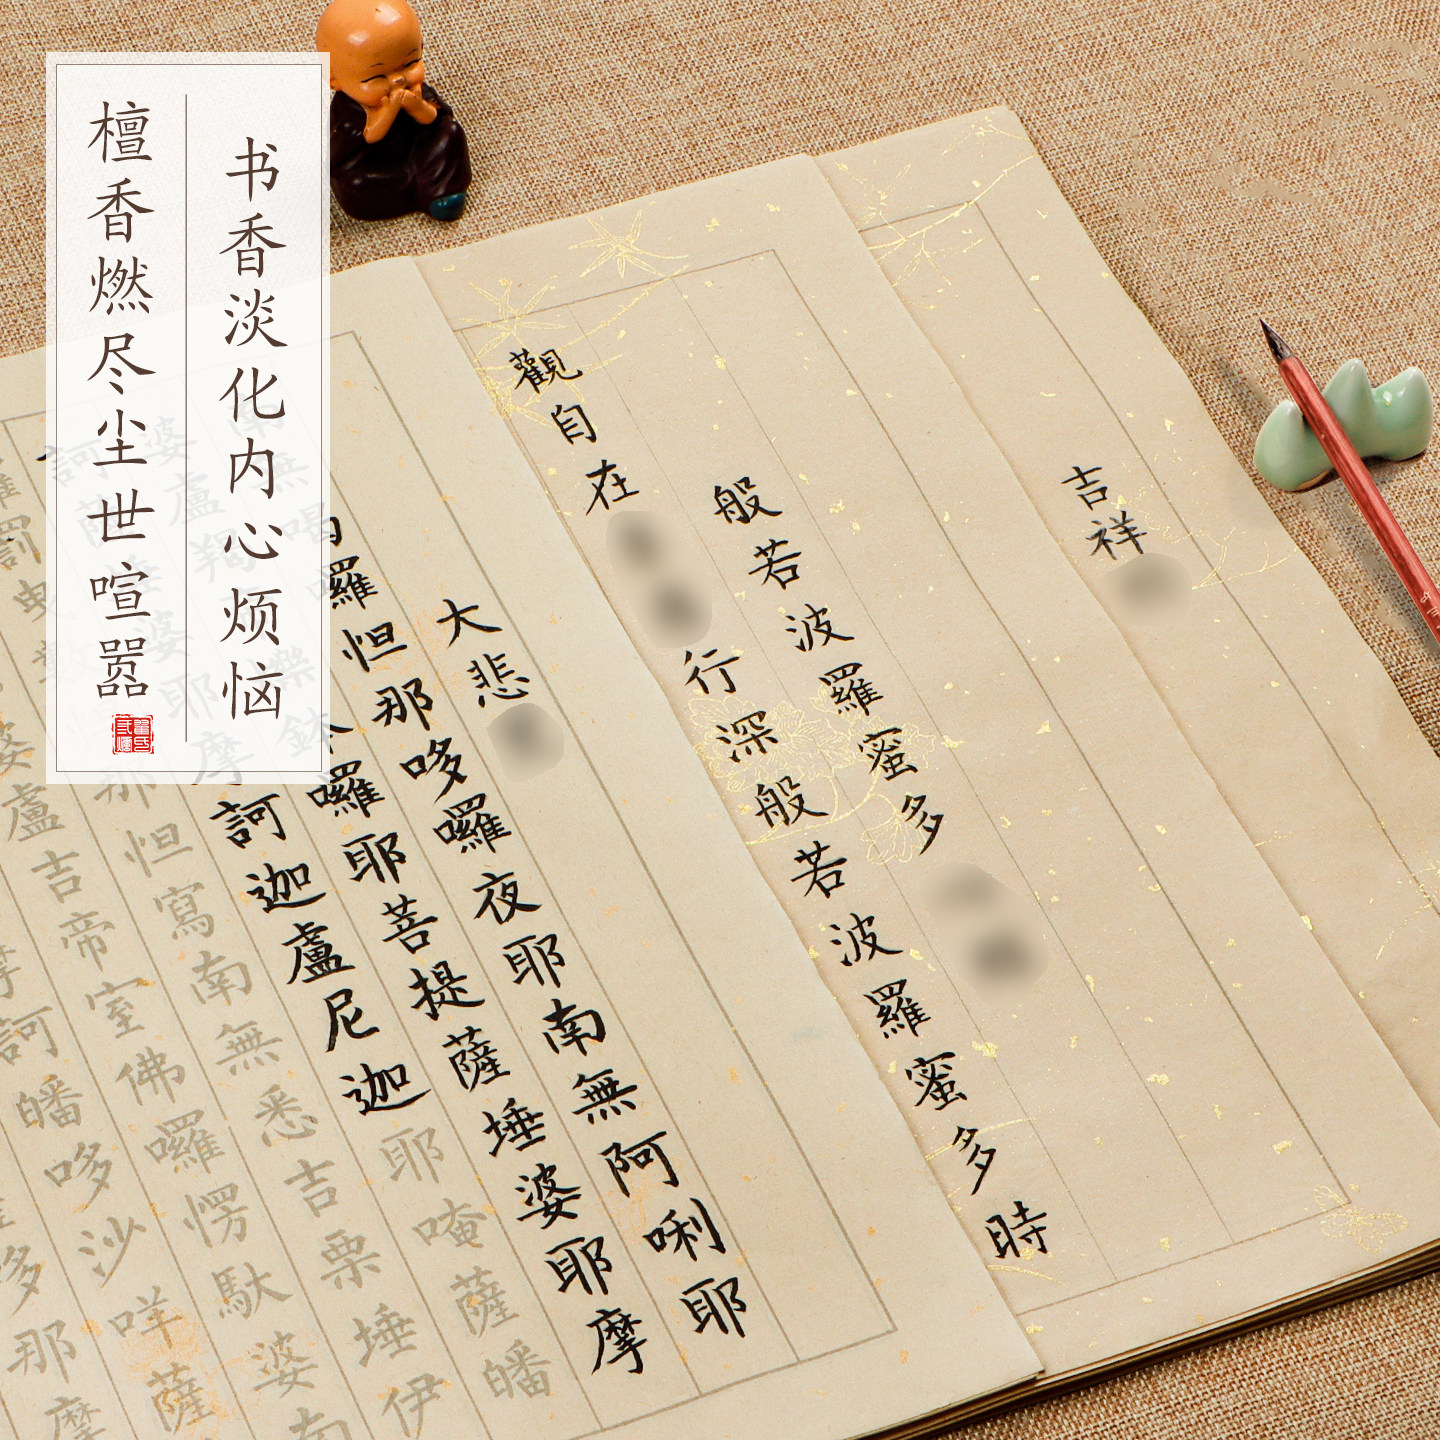 书香淡化内心烦恼
檀香燃尽尘世喧嚣
吉祥
般若波羅蜜多
觀自在
行深般若波羅蜜多時
大悲
囉怛那哆囉夜耶南無阿唎耶
囉耶菩提薩埵婆耶摩
訶迦盧尼迦耶唵薩皤
那怛寫南無悉吉栗埵伊
婆盧吉帝室佛囉愣馱婆南
摩訶皤哆沙咩薩
哆那摩